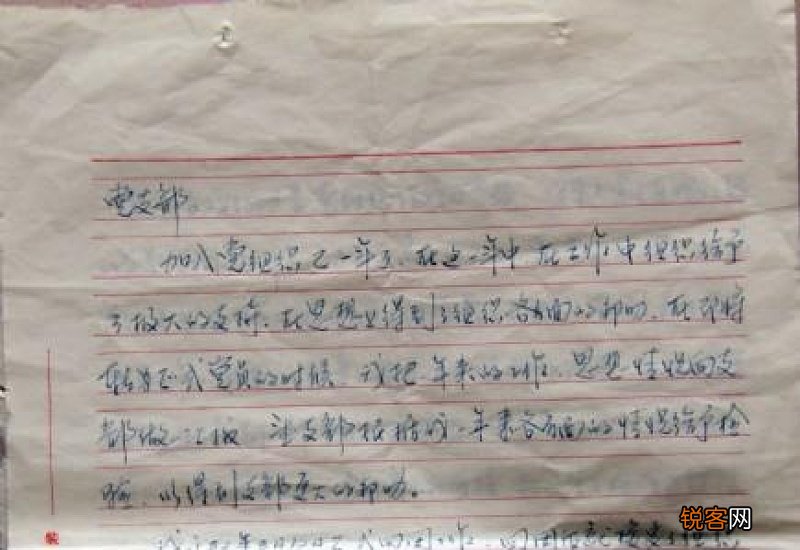 党支部
加入党组织已一年了，在这一年中在工作中组织给予
了极大的支持，在思想上得到了组织各方面的帮助，在即将
转为正式党员的时候，我把一年来的工作、思想情况向支
部做一汇报，让支部根据我一年来各方面的情况给予检
验，以得到支部更大的帮助。
锐客网